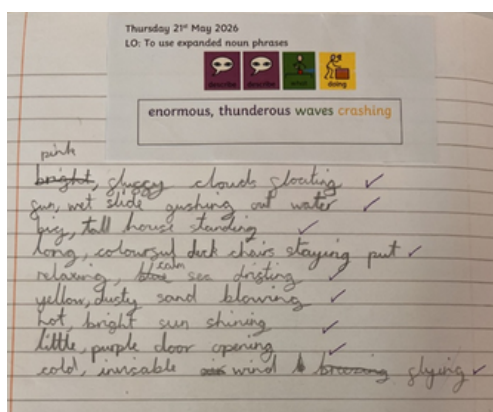 Thursday 21st May 2026
LO: To use expanded noun phrases
describe describe what doing
enormous, thunderous waves crashing
pink
bright, fluffy clouds floating
fun, wet slide gushing out water
big, tall house standing
long, colourful deck chairs staying put
relaxing, blue calm sea drifting
yellow, dusty sand blowing
hot, bright sun shining
little, purple door opening
cold, invisable wind flying